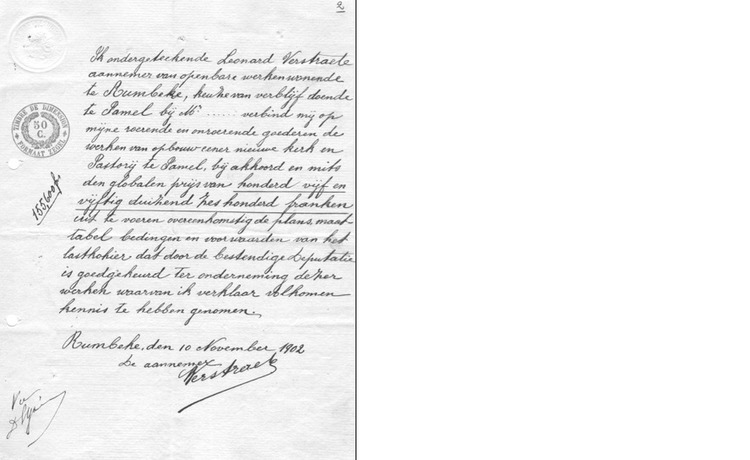 2
Ik ondergeteekende Leonard Verstraete
aannemer van openbare werken wonende
te Rumbeke, keuze van verblijf doende
te Pamel bij Mr ...... verbind mij op
mijne roerende en onroerende goederen de
werken van opbouw eener nieuwe kerk en
Pastorij te Pamel, bij akkoord en mits
den globalen prijs van honderd vijf en
vijftig duizend zes honderd franken
uit te voeren overeenkomstig de plans, maat-
tabel bedingen en voorwaarden van het
lastkohier dat door de bestendige Deputatie
is goedgekeurd ter onderneming dezer
werken waarvan ik verklaar volkomen
kennis te hebben genomen.
TIMBRE DE DIMENSION
50
C.
FORMAAT ZEGEL
155,600 f.
Rumbeke, den 10 November 1902
De aannemer
Verstraete
Vu